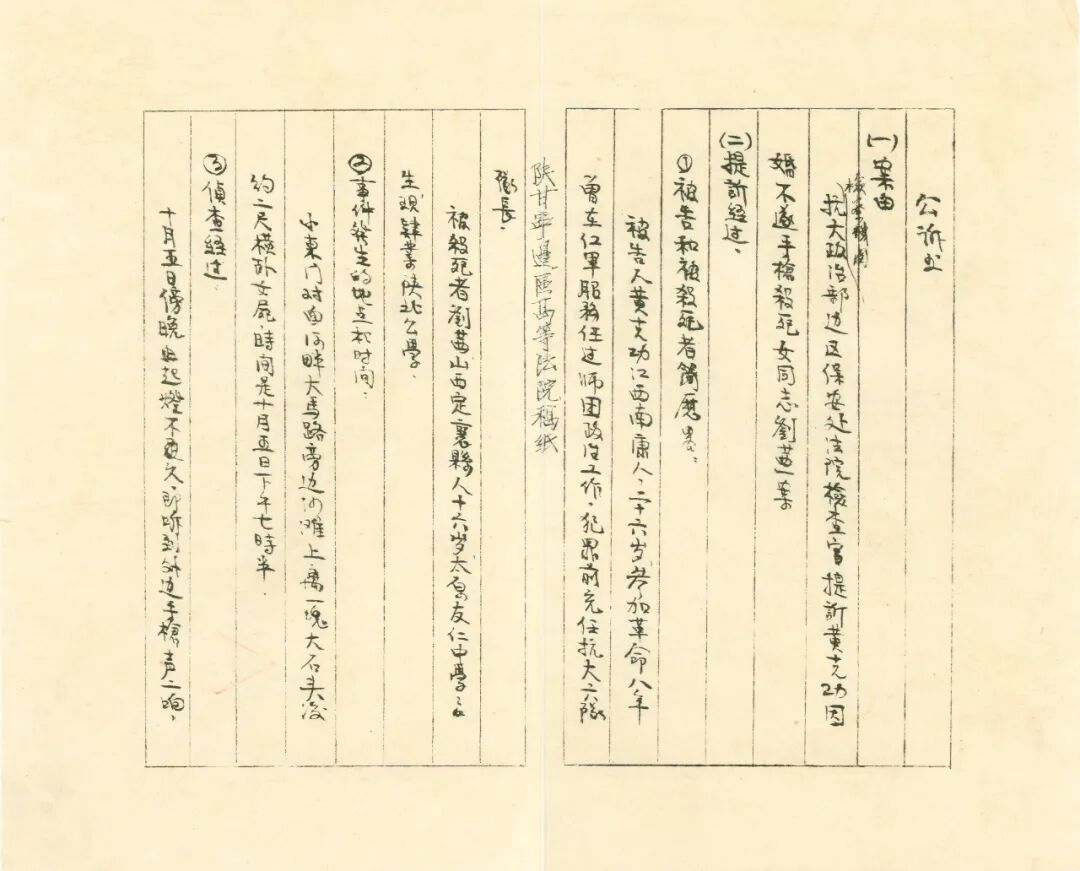 公诉书
(一)案由
检查机関
抗大政治部边区保安处法院检查官提訴黄克功因
婚不遂手槍殺死女同志劉茜一案
(二)提訴经过、
①被告和被殺死者簡歷是:
被告人黄克功江西南康人,二十六岁参加革命八年
曾在红军服務任过师团政治工作,犯罪前充任抗大六隊
隊長.
陕甘寧邊區高等法院稿纸
被殺死者劉茜山西定襄縣人十六岁太原友仁中學之
生现肄業陕北公學.
②事件發生的地点和时间:
小東门对面河畔大馬路旁边沙滩上离一塊大石头後
约二尺横卧女屍,時间是十月五日下午七時半.
③偵查经过:
十月五日傍晚出起燈不夜久,即听到外边手槍声二响,